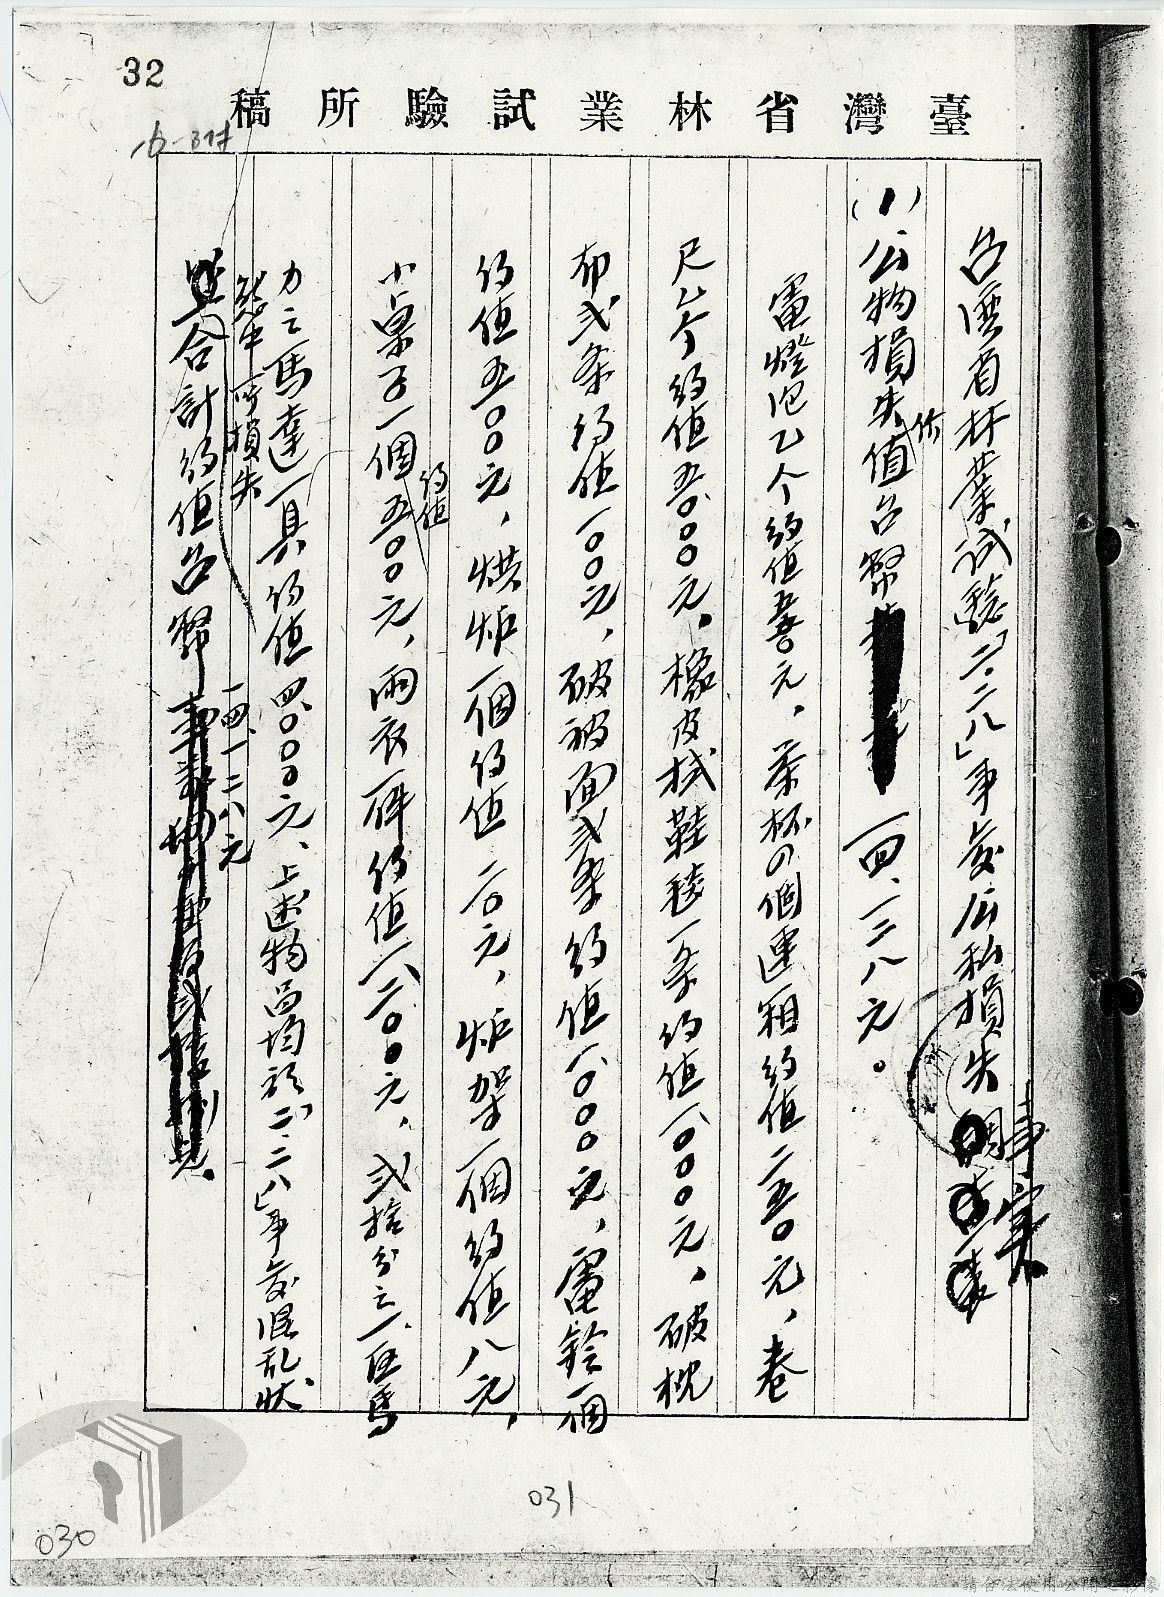 32
臺灣省林業試驗所稿
台灣省林業試驗「二.二八」事变公私損失事實
(1)公物損失估值台幣一四、一二八元。
電燈泡乙个約值元，茶杯の個連箱約值二五〇元，卷
尺乙个約值五、〇〇〇元，橡皮拭鞋毯一条約值一、〇〇〇元，破枕
布弍条約值一〇〇元，破被面弍条約值一、〇〇〇元，電鈴一個
約值五〇〇元，烘炉一個約值二〇元，炉架一個約值八元，
小桌子一個約值五〇〇元，雨衣一件約值一、二〇〇元，弍拾分之一匹馬
力之馬達一具約值四、〇〇〇元、上述物品均於「二.二八」事变混乱狀
態中所損失
合計約值台幣一四、一二八元
031
030